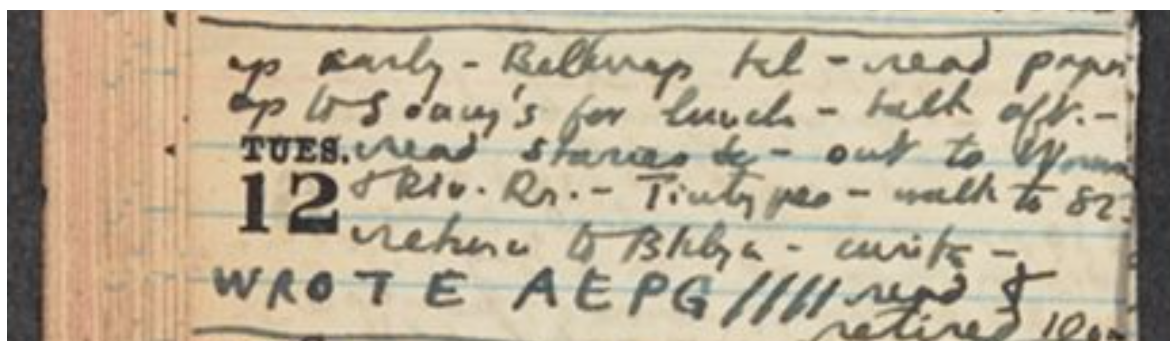 up early - Belknap tel - read paper
up to S        's for lunch - talk aft. -
TUES. read stories      - out to
12 & Riv. Dr. - Tintypes - walk to 82
return to Bklyn - write -
WROTE AEPG //// read &
retired 10